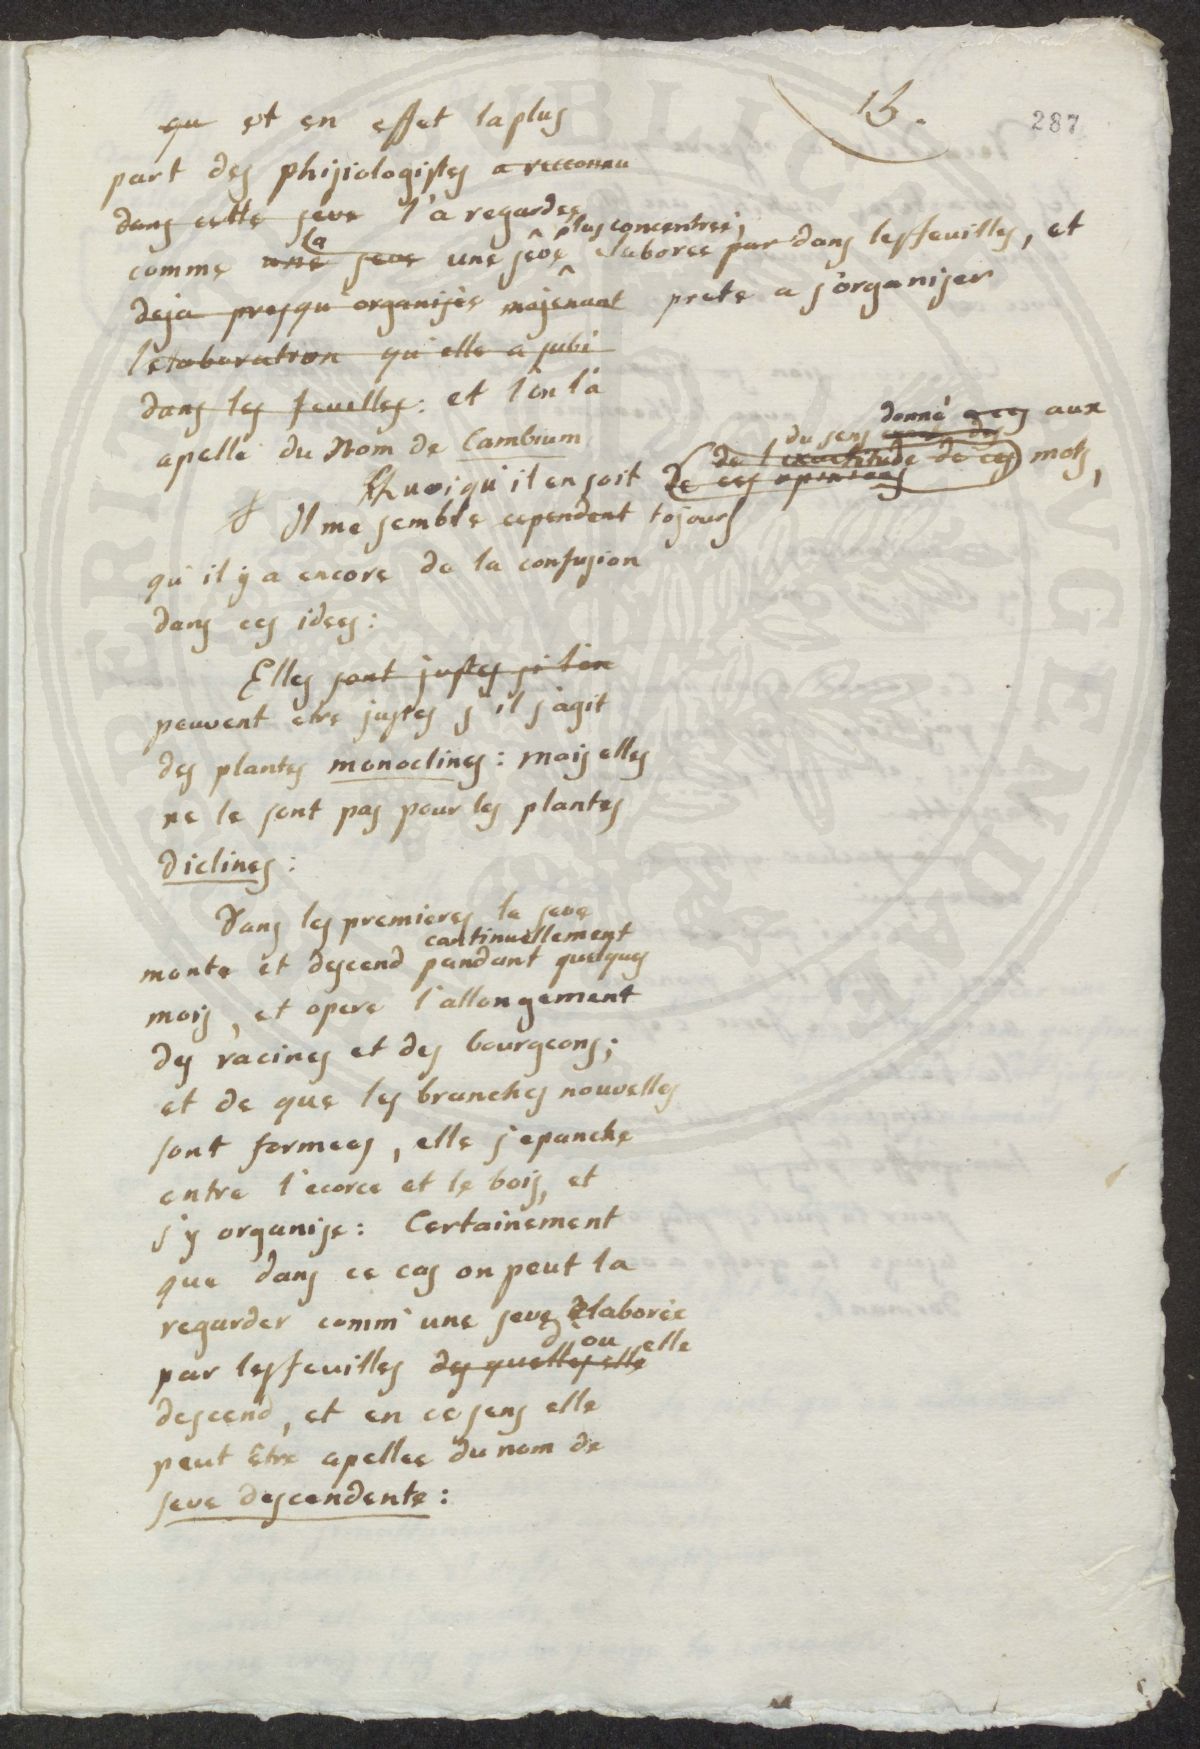 15.
287
qu et en effet la plus
part des phisiologistes a reconnu
dans cette seve l'a regardée
La plus concentrée,
comme une seve une sêve elaborée par dans les feuilles, et
deja presqu'organisée moiênant prete a s'organiser
l'elaboration qu'elle a subi
dans les feuilles: et l'on l'a
apellé du Nom de Cambium
donné a ces aux
du sens
de l'exactitude de ces mots,
Quoiqu'il en soit de ces opinions
Il me semble cependent tojours
qu'il y a encore de la confusion
dans ces idees:
Elles sont justes si l'on
peuvent etre justes s'il s'agit
des plantes monoclines: mais elles
ne le sont pas pour les plantes
diclines:
Dans les premieres la seve
continuellement
monte et descend pendant quelques
mois, et opere l'allongement
des racines et des bourgeons;
et de que les branches nouvelles
sont formees, elle s'epanche
entre l'ecorce et le bois, et
s'y organise: Certainement
que dans ce cas on peut la
regarder comm'une seve elaborée
d'ou elle
par les feuilles des quelles elle
descend, et en ce sens elle
peut être apellee du nom de
seve descendente: